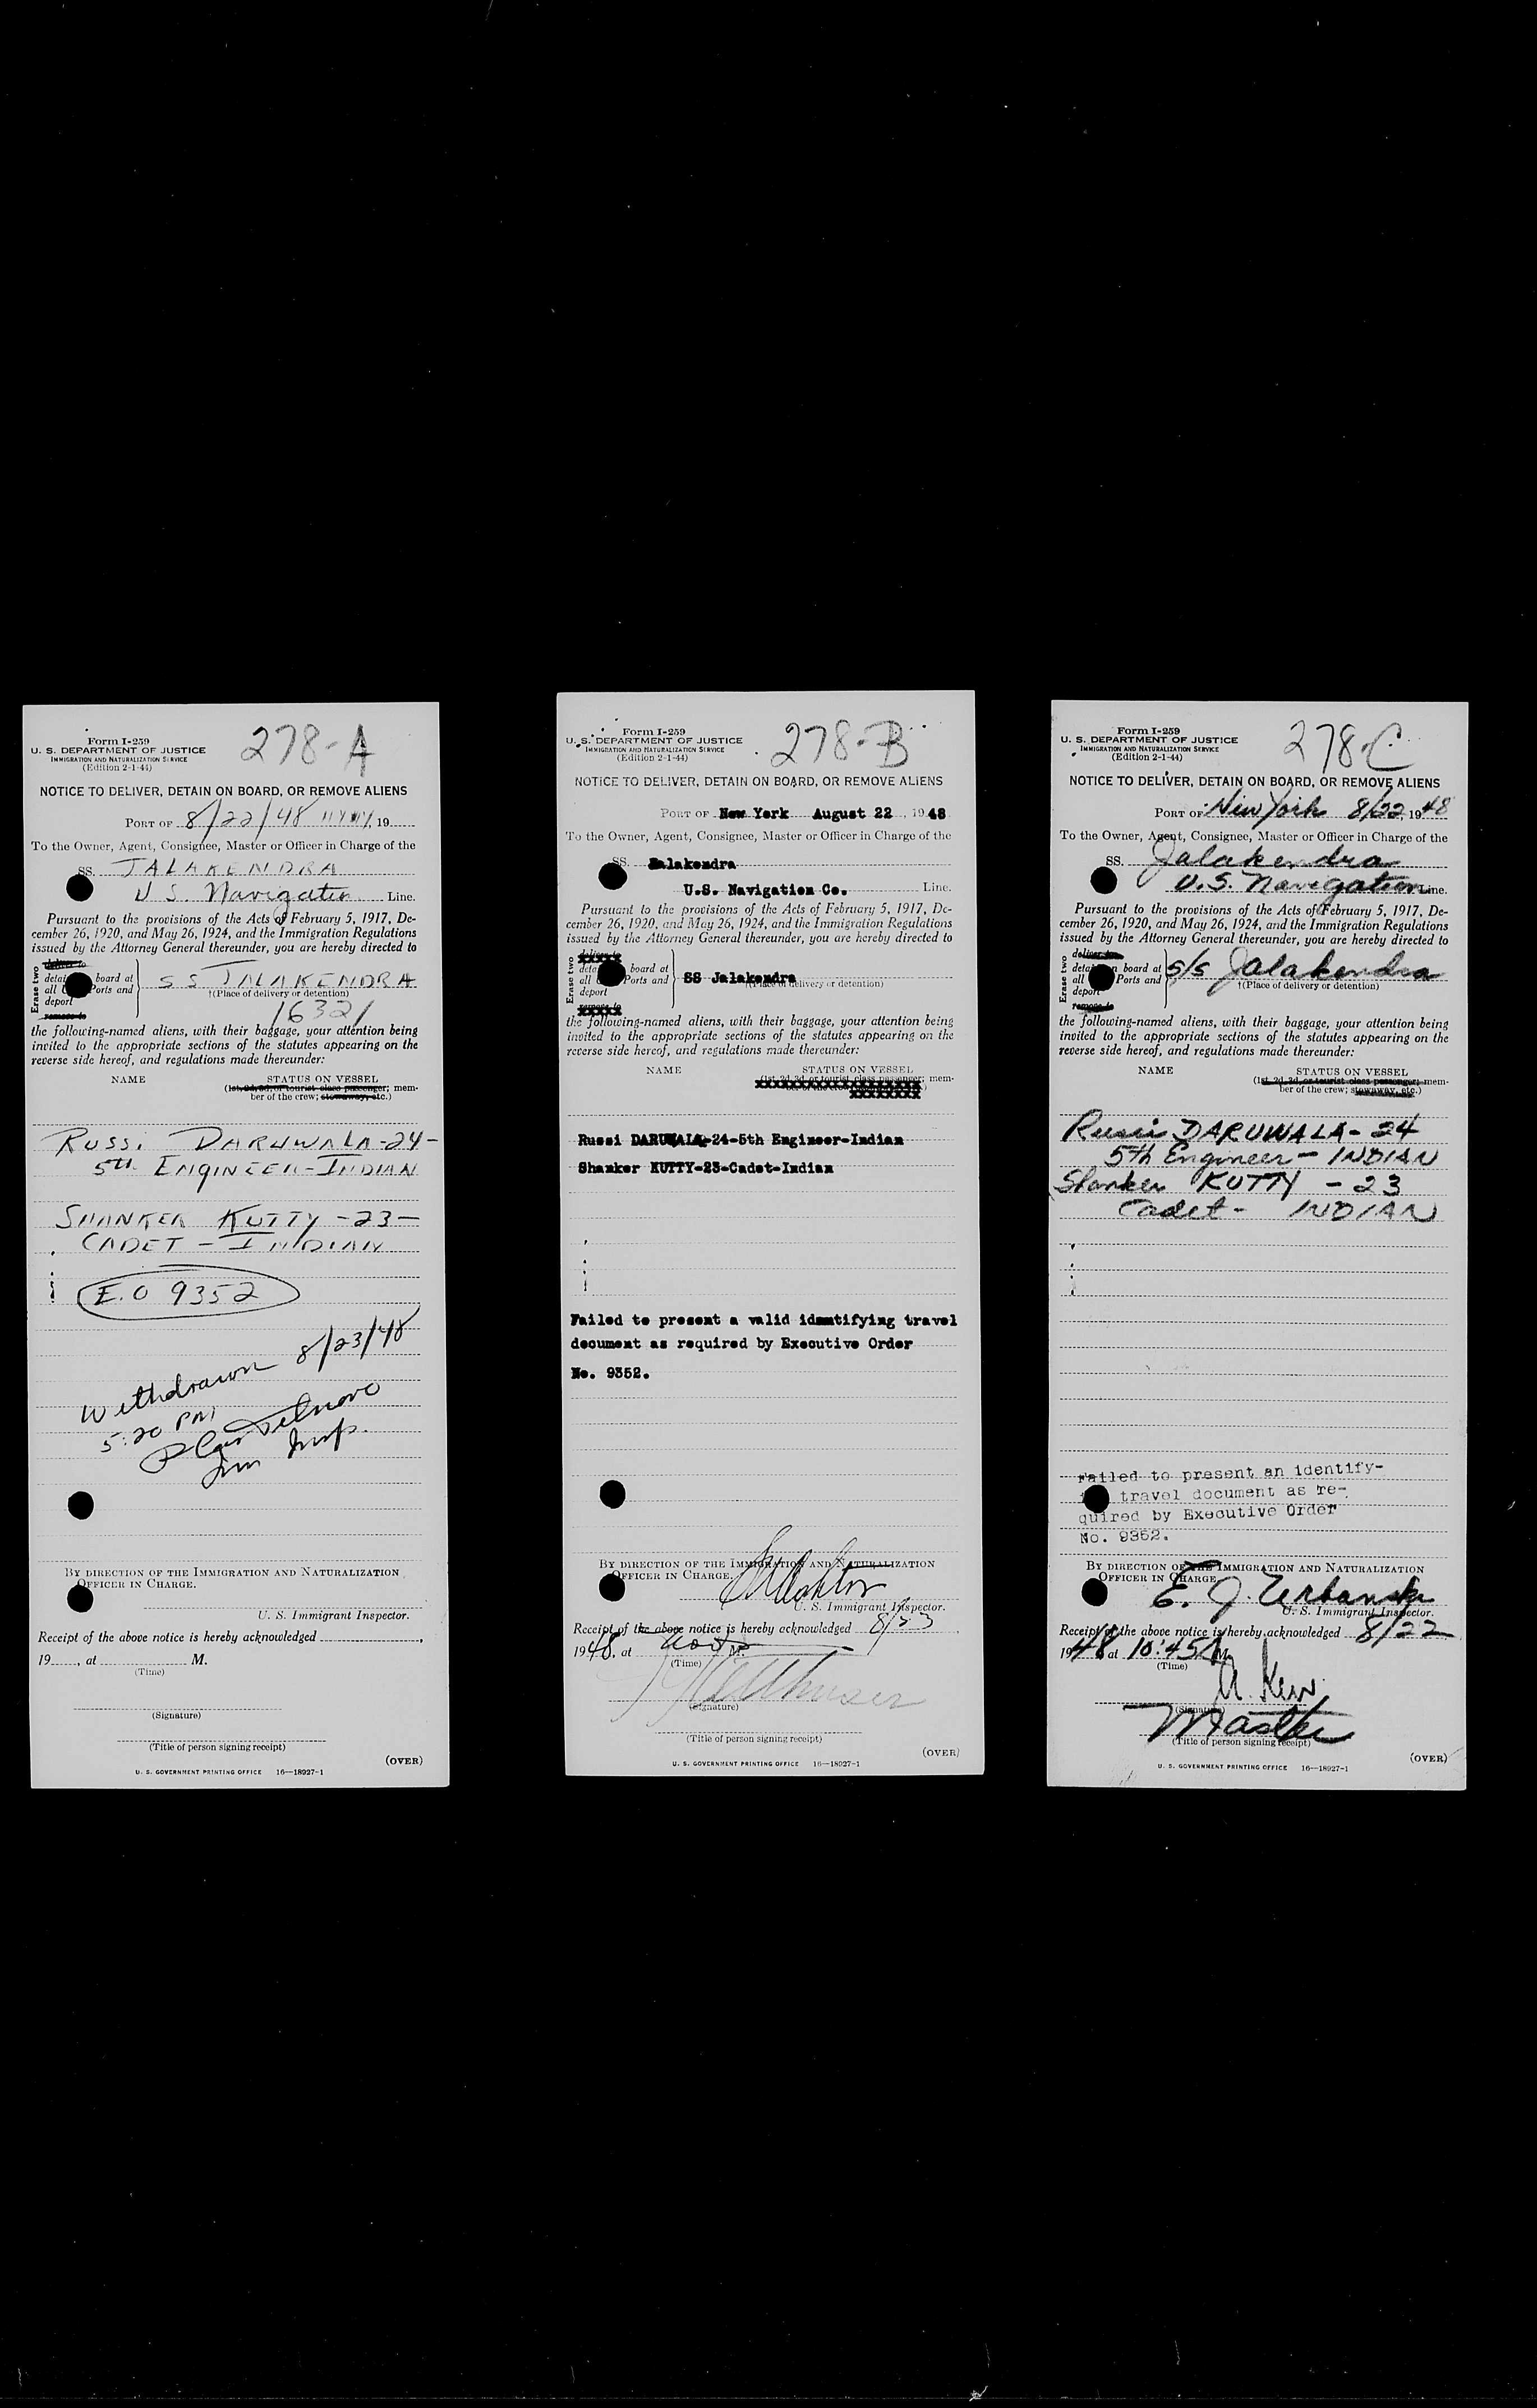 Form I-259
U. S. DEPARTMENT OF JUSTICE
IMMIGRATION AND NATURALIZATION SERVICE
(Edition 2-1-44)
278-A
NOTICE TO DELIVER, DETAIN ON BOARD, OR REMOVE ALIENS
PORT OF 8/22/48 NY NY, 19
To the Owner, Agent, Consignee, Master or Officer in Charge of the
SS. JALAKENDRA
U S. Navigation Line.
Pursuant to the provisions of the Acts of February 5, 1917, De-
cember 26, 1920, and May 26, 1924, and the Immigration Regulations
issued by the Attorney General thereunder, you are hereby directed to
Erase two
deliver to
board at
all Ports and
deport
remove to
S S JALAKENDRA
†(Place of delivery or detention)
16321
the following-named aliens, with their baggage, your attention being
invited to the appropriate sections of the statutes appearing on the
reverse side hereof, and regulations made thereunder:
NAME STATUS ON VESSEL
(1st, 2d, 3d, or tourist class passenger; mem-
ber of the crew; stowaway, etc.)
RUSSI DARUWALA-24-
5th ENGINEER-INDIAN
SHANKER KUTTY-23-
CADET - INDIAN
E.O 9352
Withdrawn 8/23/48
5:20 PM
Imm Insp.
BY DIRECTION OF THE IMMIGRATION AND NATURALIZATION
OFFICER IN CHARGE.
U. S. Immigrant Inspector.
Receipt of the above notice is hereby acknowledged
19 , at M.
(Time)
(Signature)
(Title of person signing receipt)
(OVER)
U. S. GOVERNMENT PRINTING OFFICE 16—18927-1
Form I-259
U. S. DEPARTMENT OF JUSTICE
IMMIGRATION AND NATURALIZATION SERVICE
(Edition 2-1-44)
278-B
NOTICE TO DELIVER, DETAIN ON BOARD, OR REMOVE ALIENS
PORT OF New York August 22, 1948
To the Owner, Agent, Consignee, Master or Officer in Charge of the
SS. Jalakendra
U.S. Navigation Co. Line.
Pursuant to the provisions of the Acts of February 5, 1917, De-
cember 26, 1920, and May 26, 1924, and the Immigration Regulations
issued by the Attorney General thereunder, you are hereby directed to
Erase two
board at
all Ports and
deport
SS Jalakendra
†(Place of delivery or detention)
the following-named aliens, with their baggage, your attention being
invited to the appropriate sections of the statutes appearing on the
reverse side hereof, and regulations made thereunder:
NAME STATUS ON VESSEL
(1st, 2d, 3d, or tourist class passenger; mem-
ber of the crew;
Russi DARUWALA-24-5th Engineer-Indian
Shanker KUTTY-23-Cadet-Indian
Failed to present a valid idantifying travel
document as required by Executive Order
No. 9352.
BY DIRECTION OF THE IMMIGRATION AND NATURALIZATION
OFFICER IN CHARGE.
U. S. Immigrant Inspector.
Receipt of the above notice is hereby acknowledged 8/23
1948, at M.
(Time)
(Signature)
(Title of person signing receipt)
(OVER)
U. S. GOVERNMENT PRINTING OFFICE 16—18927-1
Form I-259
U. S. DEPARTMENT OF JUSTICE
IMMIGRATION AND NATURALIZATION SERVICE
(Edition 2-1-44)
278-C
NOTICE TO DELIVER, DETAIN ON BOARD, OR REMOVE ALIENS
PORT OF New York 8/22, 1948
To the Owner, Agent, Consignee, Master or Officer in Charge of the
SS. Jalakendra
U.S. Navigation Line.
Pursuant to the provisions of the Acts of February 5, 1917, De-
cember 26, 1920, and May 26, 1924, and the Immigration Regulations
issued by the Attorney General thereunder, you are hereby directed to
Erase two
deliver to
on board at
all Ports and
deport
remove to
S/S Jalakendra
†(Place of delivery or detention)
the following-named aliens, with their baggage, your attention being
invited to the appropriate sections of the statutes appearing on the
reverse side hereof, and regulations made thereunder:
NAME STATUS ON VESSEL
(1st, 2d, 3d, or tourist class passenger; mem-
ber of the crew; stowaway, etc.)
Russi DARUWALA - 24
5th Engineer - INDIAN
Shanker KUTTY - 23
Cadet - INDIAN
Failed to present an identify-
travel document as re-
quired by Executive Order
No. 9352.
BY DIRECTION OF THE IMMIGRATION AND NATURALIZATION
OFFICER IN CHARGE.
E. J. Urbanski
U. S. Immigrant Inspector.
Receipt of the above notice is hereby acknowledged 8/22
1948 at 10:45 A M.
(Time)
(Signature)
Master
(Title of person signing receipt)
(OVER)
U. S. GOVERNMENT PRINTING OFFICE 16—18927-1